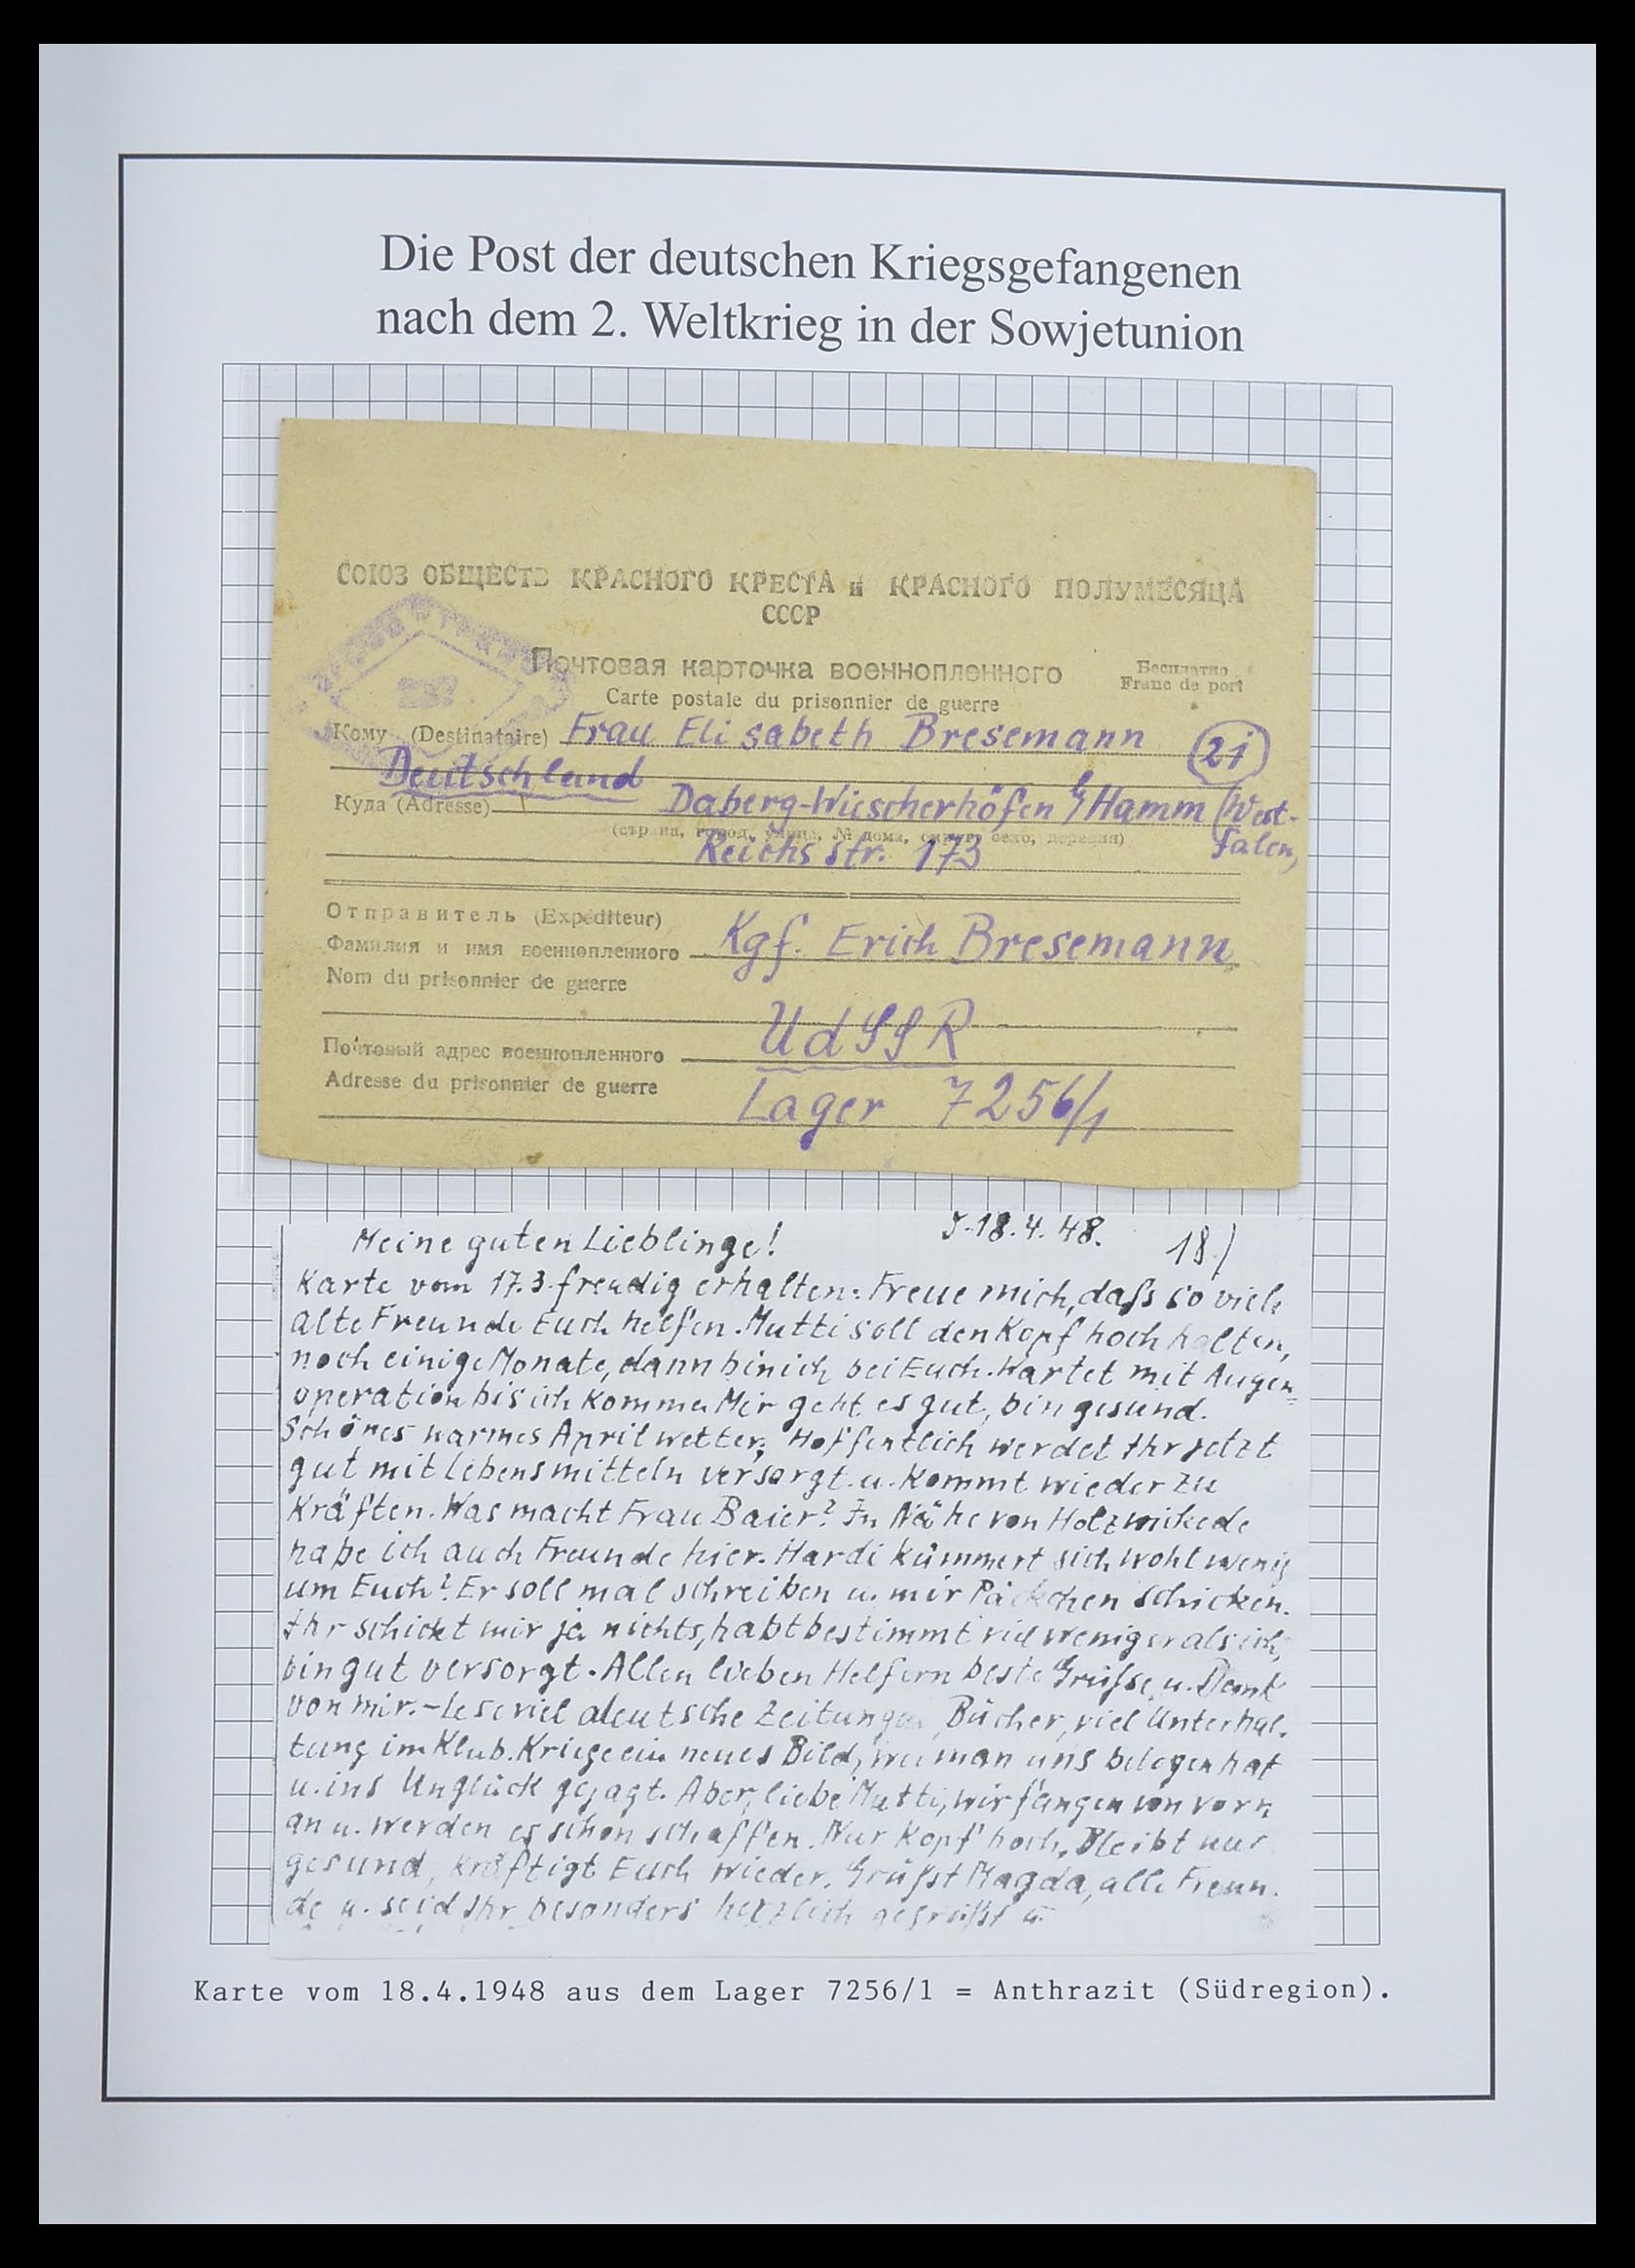 Die Post der deutschen Kriegsgefangenen
nach dem 2. Weltkrieg in der Sowjetunion
СОЮЗ ОБЩЕСТВ КРАСНОГО КРЕСТА и КРАСНОГО ПОЛУМЕСЯЦА
СССР
Почтовая карточка военнопленного
Бесплатно
Carte postale du prisonnier de guerre
Franc de port
Кому (Destinataire) Frau Elisabeth Bresemann (21)
Deutschland
Куда (Adresse) Daberg-Wiescherhöfen b/Hamm (West-
(страна, город, улица, № дома, округ, село, деревня)
falen)
Reichsstr. 173
Отправитель (Expéditeur)
Фамилия и имя военнопленного Kgf. Erich Bresemann
Nom du prisonnier de guerre
UdSSR
Почтовый адрес военнопленного
Adresse du prisonnier de guerre
Lager 7256/1
Meine guten Lieblinge! 18.4.48. 18/
Karte vom 17.3. freudig erhalten. Freue mich, daß so viele
alte Freunde Euch helfen. Mutti soll den Kopf hoch halten,
noch einige Monate, dann bin ich bei Euch. Wartet mit Augen=
operation bis ich komme. Mir geht es gut, bin gesund.
Schönes warmes Aprilwetter. Hoffentlich werdet Ihr jetzt
gut mit Lebensmitteln versorgt u. kommt wieder zu
Kräften. Was macht Frau Baier? In Nähe von Holzwickede
habe ich auch Freunde hier. Hardi kümmert sich wohl wenig
um Euch? Er soll mal schreiben u. mir Päckchen schicken.
Ihr schickt mir ja nichts, habt bestimmt viel weniger als ich,
bin gut versorgt. Allen lieben Helfern beste Grüße u. Dank
von mir. - Lese viel deutsche Zeitungen, Bücher, viel Unterhal-
tung im Klub. Kriege ein neues Bild, wie man uns belogen hat
u. ins Unglück gejagt. Aber, liebe Mutti, wir fangen von vorn
an u. werden es schon schaffen. Nur Kopf hoch. Bleibt nur
gesund, kräftigt Euch wieder. Grüßt Magda, alle Freun-
de u. seid Ihr besonders herzlich gegrüßt u.
Karte vom 18.4.1948 aus dem Lager 7256/1 = Anthrazit (Südregion).